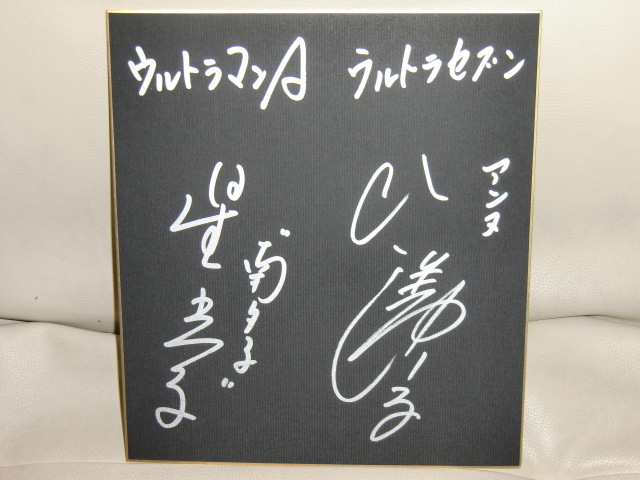 ウルトラマンA
ウルトラセブン
アンヌ
ひし美ゆり子
〝南夕子〟
星光子